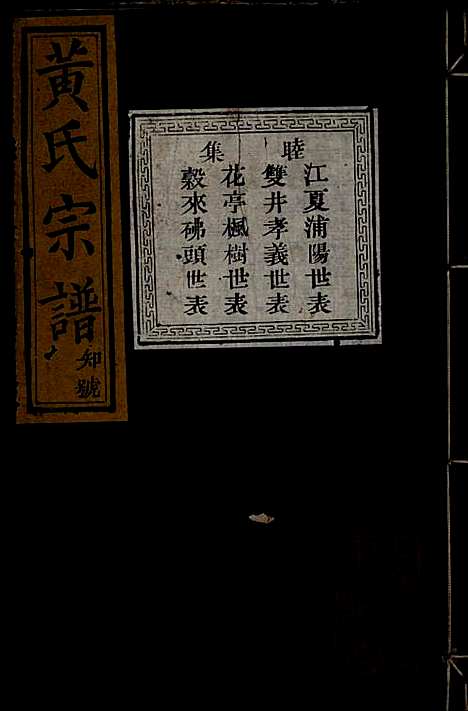 黃氏宗譜
知號
睦集
江夏浦陽世表
雙井孝義世表
花亭楓樹世表
穀來砩頭世表